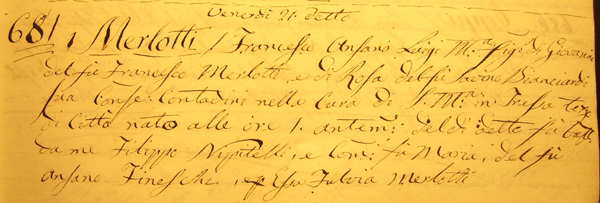 Venerdi 21. detto
681, Merlotti / Francesco Ansano Luigi M.ª figº di Giovanni
del fù Francesco Merlotti, e di Rosa del fù Bianciardi
sua Conse: Contadini nella Cura di S. M.ª in Tressa
di Città nato alle ore 1. antem: del dì detto fù
da me Filippo e Com: fù Maria, del fù
Ansano Fineschi, Fulvia Merlotti